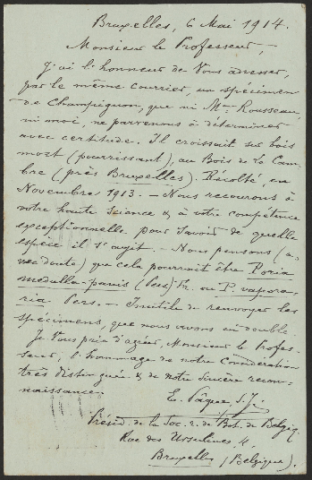 Bruxelles, 6 Mai 1914.
Monsieur le Professeur,
J'ai l'honneur de Vous adresser,
par le même courrier, un spécimen
de Champignon, que ni Mme Rousseau,
ni moi, ne parvenons à déterminer
avec certitude. Il croissait sur bois
mort (pourrissant), au Bois de la Cam-
bre (près Bruxelles). Récolté, en
Novembre 1913. – Nous recourons à
votre haute Science & à votre compétence
exceptionnelle pour savoir de quelle
espèce il s'agit. – Nous pensons (a-
vec doute), que cela pourrait être Poria
medulla-panis (Pers) Fr. ou P. vapora-
ria Pers. – Inutile de renvoyer les
spécimens, que nous avons en double.
Je Vous prie d'agréer, Monsieur le Profes-
seur, l'hommage de notre Considération
très distinguée & de notre sincère recon-
naissance.
E. Pâque S.J.
Présid. de la Soc. r. de Bot. de Belgiq.
Rue des Ursulines 4,
Bruxelles (Belgique).